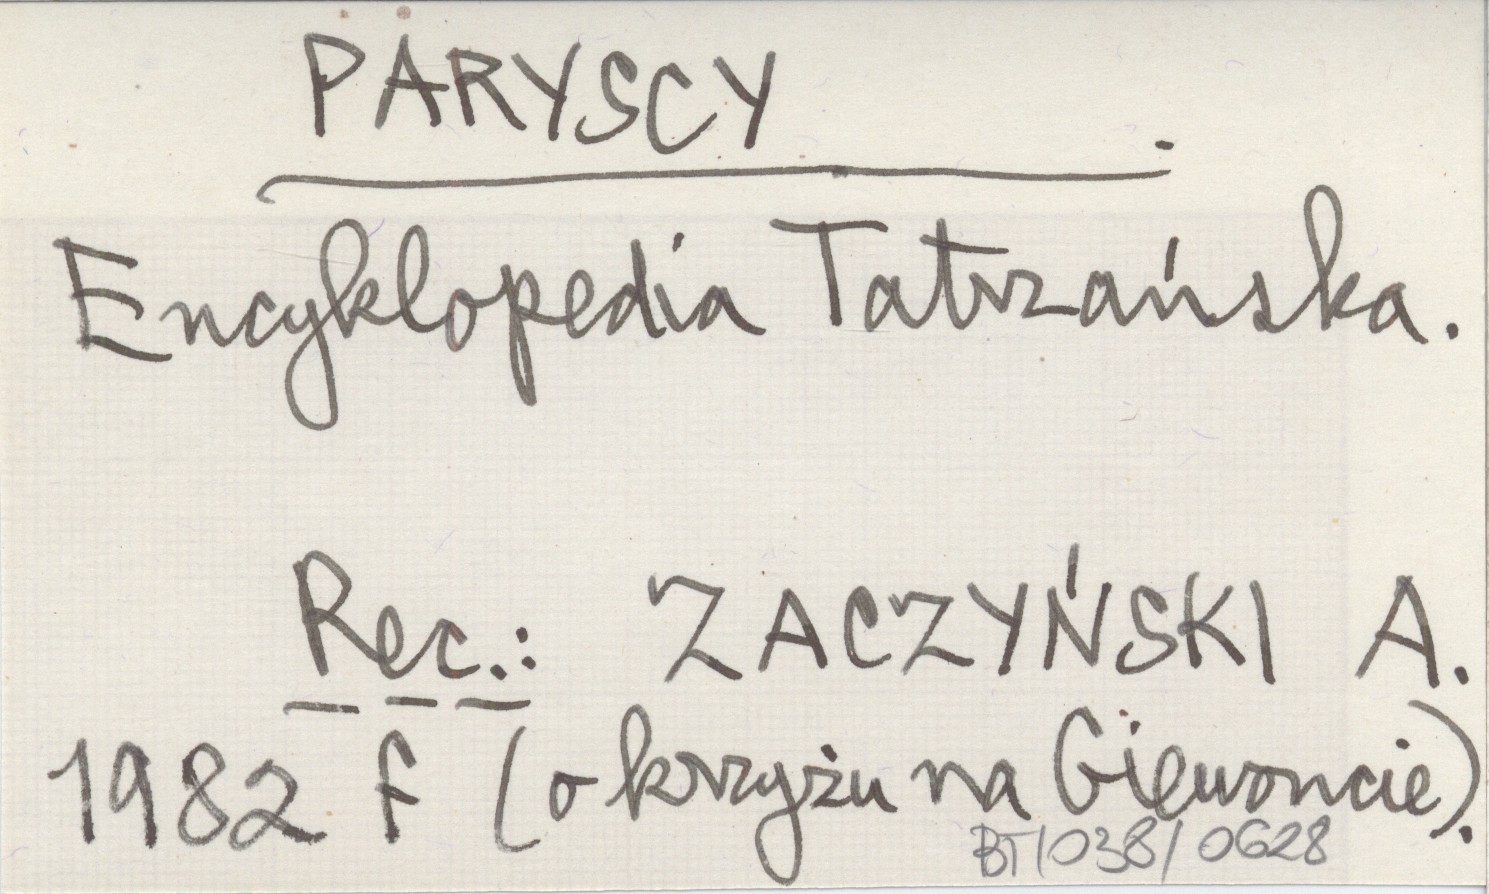 PARYSCY .
Encyklopedia Tatrzańska.
Rec.: ZACZYŃSKI A.
1982 f (o krzyżu na Giewoncie).
BT/038/0628